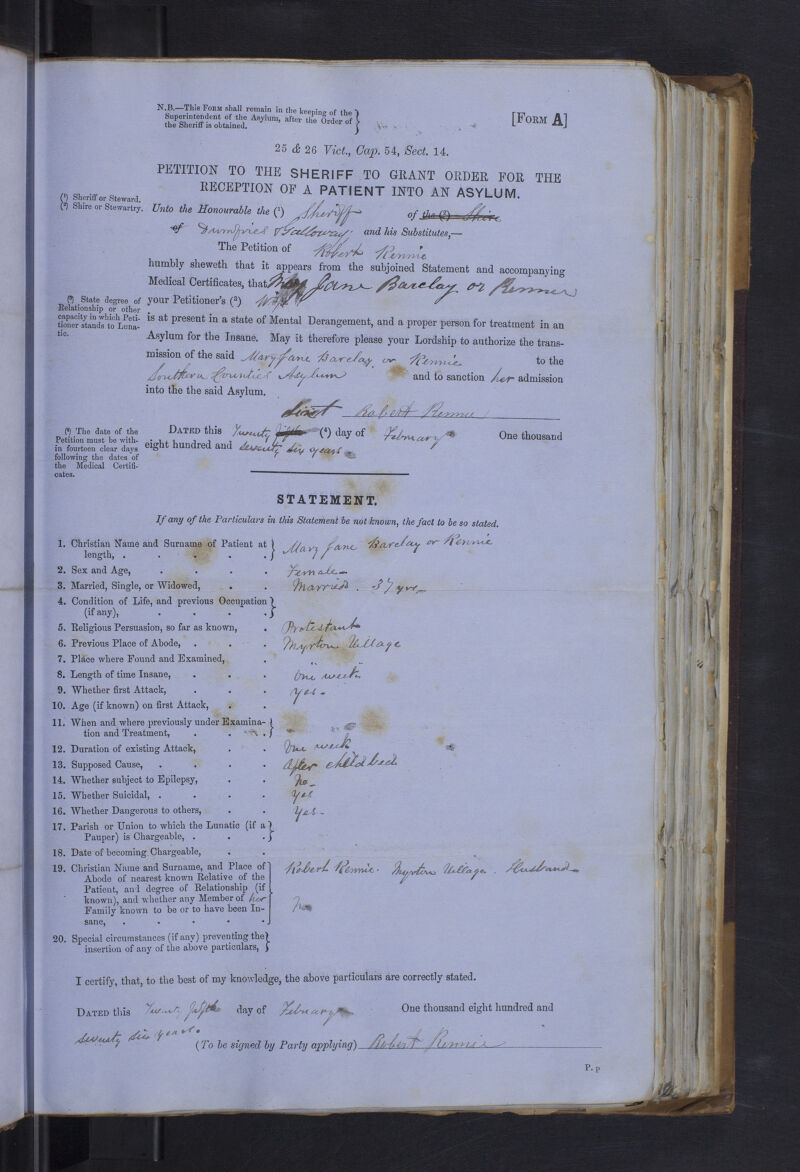 N.B.—This Form shall remain in the keeping of the
Superintendent of the Asylum, after the Order of
the Sheriff is obtained.
[Form A]
25 & 26 Vict., Cap. 54, Sect. 14.
PETITION TO THE SHERIFF TO GRANT ORDER FOR THE
RECEPTION OF A PATIENT INTO AN ASYLUM.
(1) Sheriff or Steward.
(2) Shire or Stewartry.
Unto the Honourable the (1) Sheriff of the (2) Shire
of Dumfries & Galloway and his Substitutes,—
The Petition of Robert Rennie
humbly sheweth that it appears from the subjoined Statement and accompanying
Medical Certificates, that Mary Jane Barclay or Rennie
(3) State degree of
Relationship or other
capacity in which Peti-
tioner stands to Luna-
tic.
your Petitioner's (3) Wife
is at present in a state of Mental Derangement, and a proper person for treatment in an
Asylum for the Insane. May it therefore please your Lordship to authorize the trans-
mission of the said Mary Jane Barclay or Rennie to the
Southern Counties Asylum and to sanction her admission
into the the said Asylum.
Robert Rennie
(4) The date of the
Petition must be with-
in fourteen clear days
following the dates of
the Medical Certifi-
cates.
Dated this Twenty fifth (4) day of February One thousand
eight hundred and seventy six years
STATEMENT.
If any of the Particulars in this Statement be not known, the fact to be so stated.
1. Christian Name and Surname of Patient at
length, . . . . . Mary Jane Barclay or Rennie
2. Sex and Age, . . . . Female
3. Married, Single, or Widowed, . . Married. 37 yrs
4. Condition of Life, and previous Occupation
(if any), . . . .
5. Religious Persuasion, so far as known, . Protestant
6. Previous Place of Abode, . . . Myrton Village
7. Place where Found and Examined, . " "
8. Length of time Insane, . . . One week
9. Whether first Attack, . . . Yes
10. Age (if known) on first Attack, . .
11. When and where previously under Examina-
tion and Treatment, . . . .
12. Duration of existing Attack, . . One week
13. Supposed Cause, . . . . After childbed
14. Whether subject to Epilepsy, . . No
15. Whether Suicidal, . . . . Yes
16. Whether Dangerous to others, . . Yes
17. Parish or Union to which the Lunatic (if a
Pauper) is Chargeable, . . .
18. Date of becoming Chargeable, . .
19. Christian Name and Surname, and Place of
Abode of nearest known Relative of the
Patient, and degree of Relationship (if
known), and whether any Member of her
Family known to be or to have been In-
sane, . . . . . .
Robert Rennie. Myrton Village. Husband
No
20. Special circumstances (if any) preventing the
insertion of any of the above particulars,
I certify, that, to the best of my knowledge, the above particulars are correctly stated.
Dated this Twenty fifth day of February One thousand eight hundred and
seventy six years.
(To be signed by Party applying) Robert Rennie
P. p